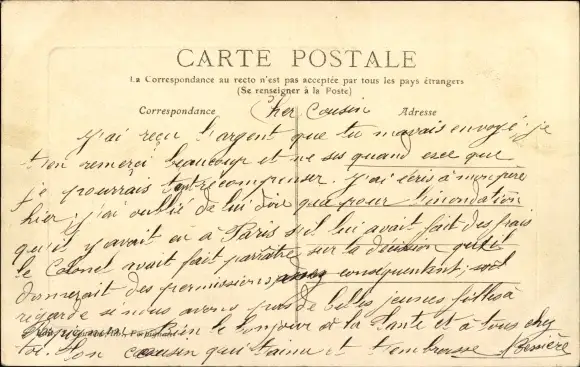 CARTE POSTALE
La Correspondance au recto n'est pas acceptée par tous les pays étrangers
(Se renseigner à la Poste)
Correspondance
Adresse
Cher Cousin
J'ai reçu l'argent que tu mavais envoyé. je
t'en remerci beaucoup et ne ses quand esce que
je pourrais te récompenser. J'ai écris à mon père
hier. j'ai oublié de lui dire que pour l'inondation
qu'il y avait eu à Paris s'il lui avait fait des frais
le Colonel avait fait parraître sur la décision qu'il
donnerait des permissions conséquentent; soit
regarde si nous avons pas de belles jeunes filles à
Perpignan. Bien le bonjour à la Tante et à tous chez
toi. Ton cousin qui t'aime et t'embrasse Bessière